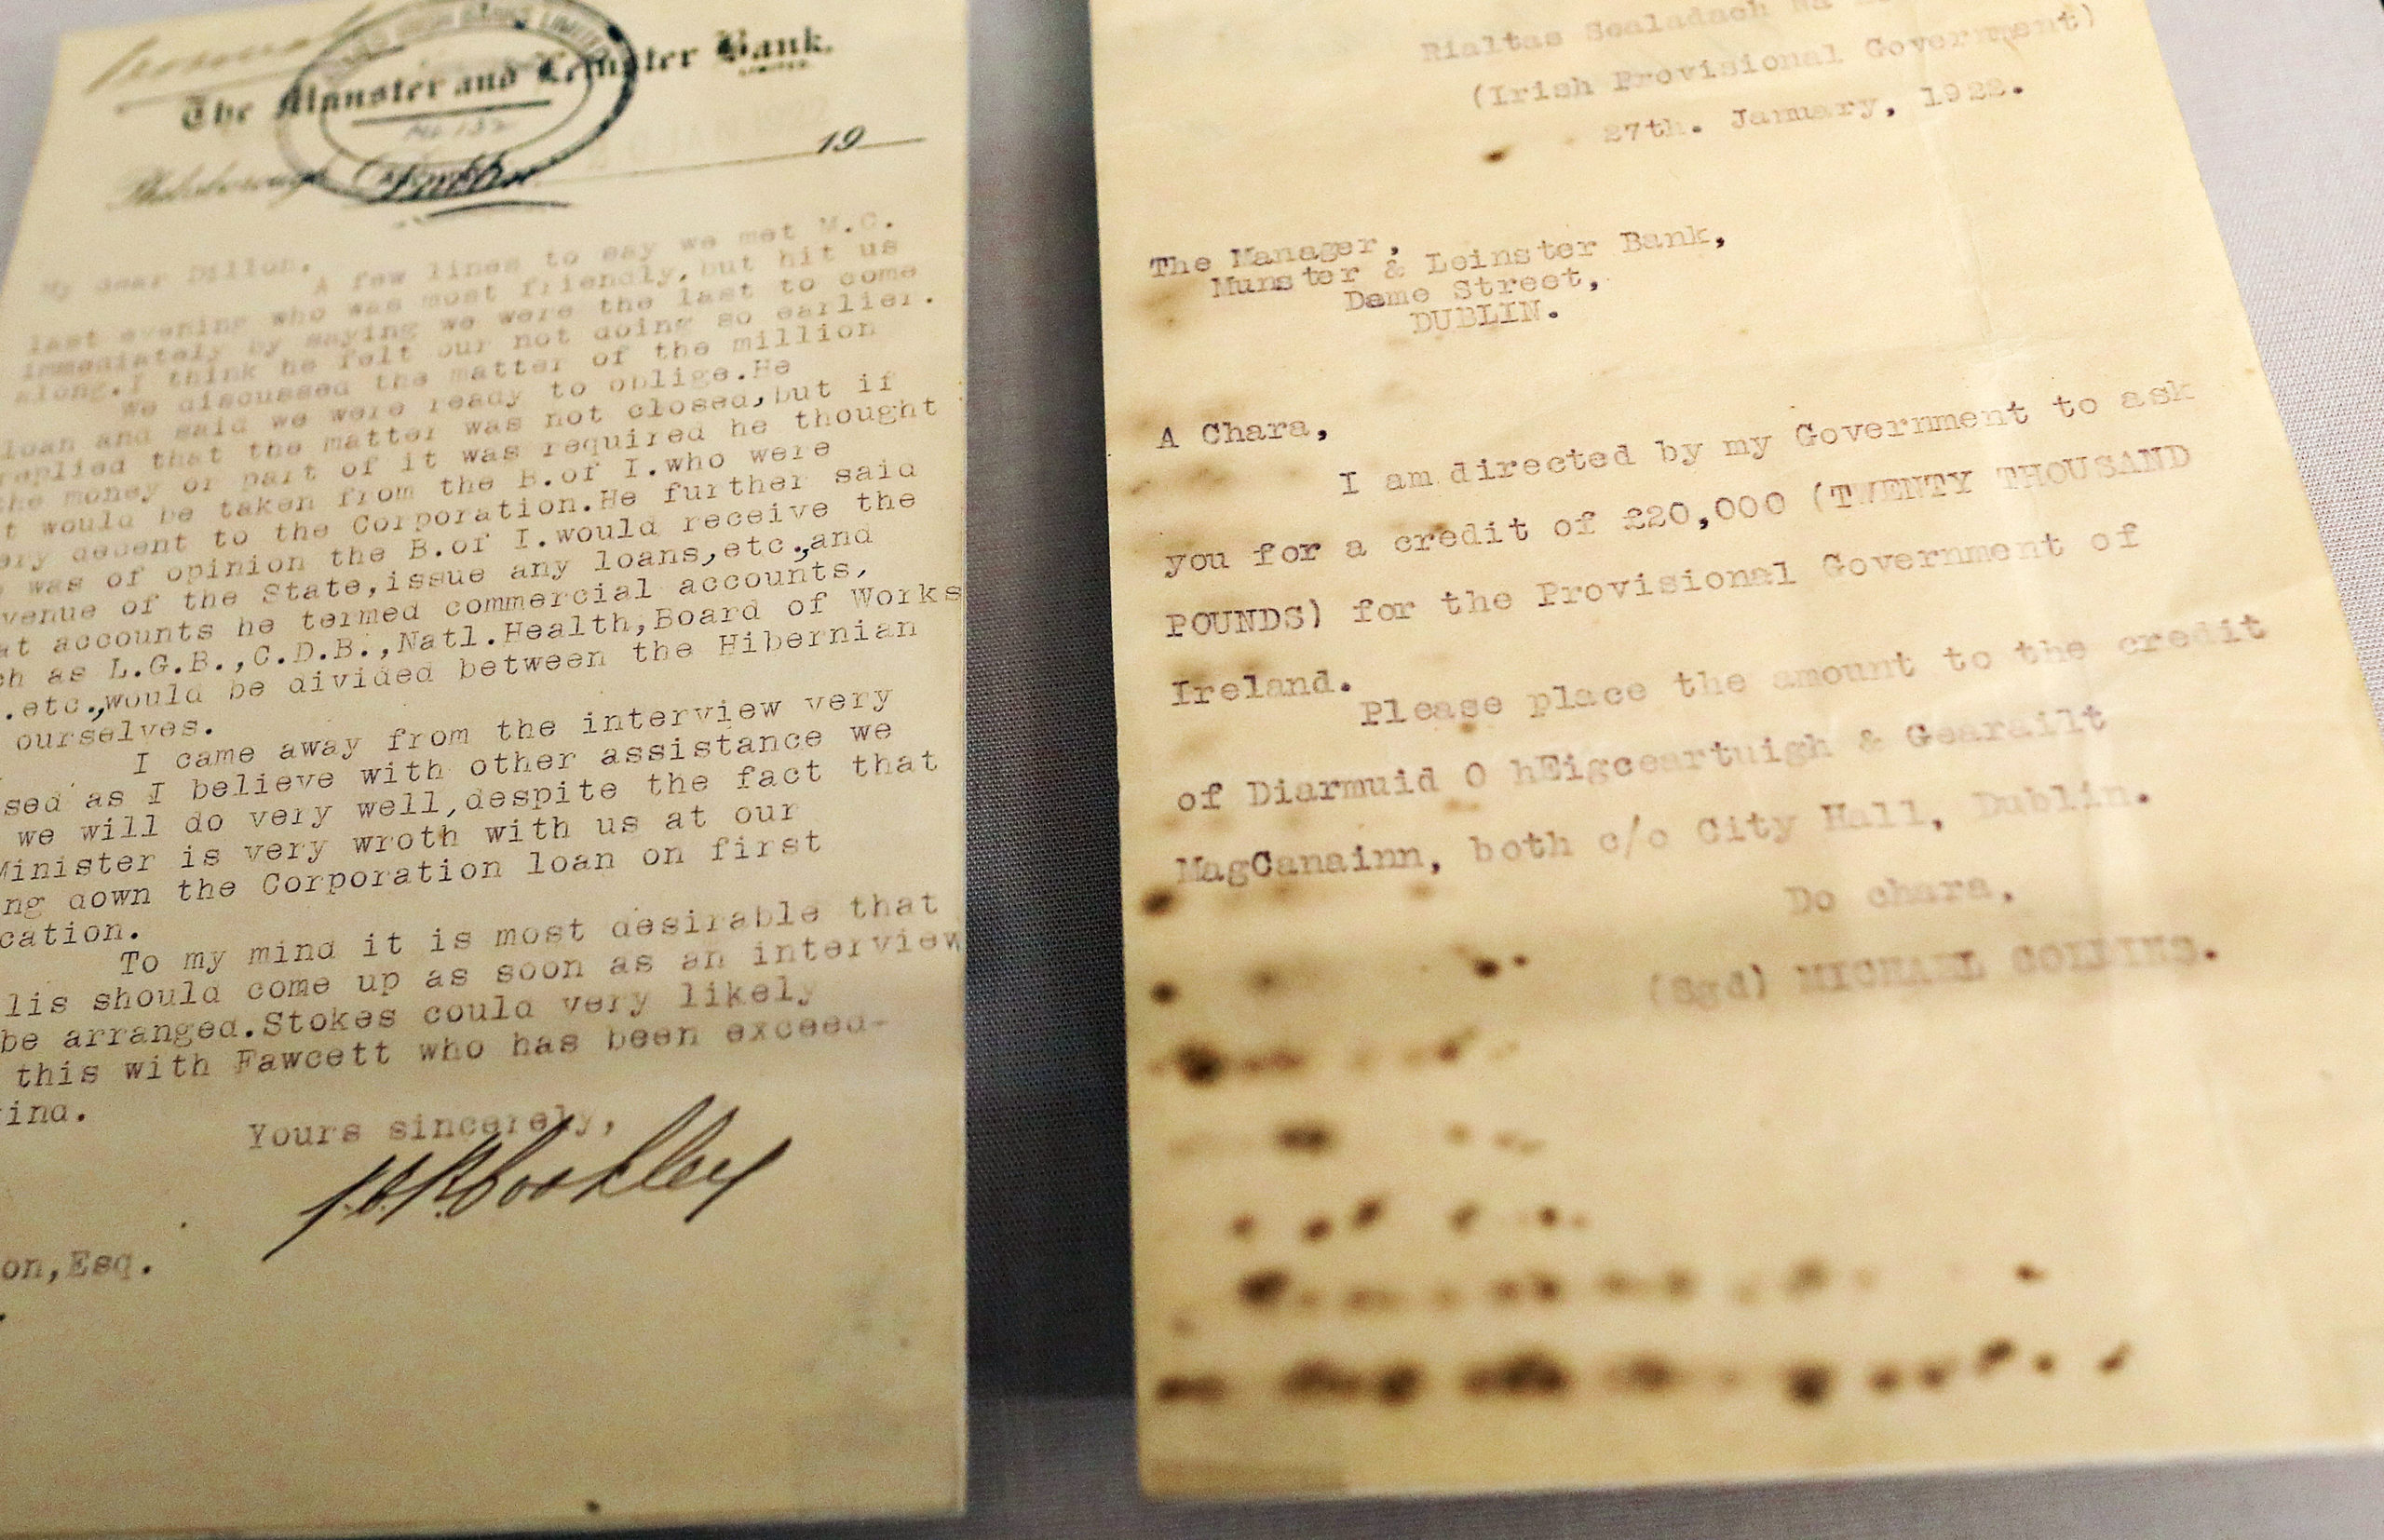 The Munster and Leinster Bank.
LIMITED
Phibsborough Dublin 19
My dear Dillon,
A few lines to say we met M.C.
last evening who was most friendly,but hit us
immediately by saying we were the last to come
along.I think he felt our not doing so earlier.
We discussed the matter of the million
loan and said we were ready to oblige.He
replied that the matter was not closed,but if
the money or part of it was required he thought
t would be taken from the B.of I.who were
ery decent to the Corporation.He further said
was of opinion the B.of I.would receive the
venue of the State,issue any loans,etc.,and
at accounts he termed commercial accounts,
ch as L.G.B.,C.D.B.,Natl.Health,Board of Works
.etc.,would be divided between the Hibernian
ourselves.
I came away from the interview very
sed as I believe with other assistance we
we will do very well,despite the fact that
Minister is very wroth with us at our
ng down the Corporation loan on first
cation.
To my mind it is most desirable that
lis should come up as soon as an interview
be arranged.Stokes could very likely
this with Fawcett who has been exceed-
ind.
Yours sincerely,
on,Esq.
Rialtas Sealadach na
(Irish Provisional Government)
27th. January, 1922.
The Manager,
Munster & Leinster Bank,
Dame Street,
DUBLIN.
A Chara,
I am directed by my Government to ask
you for a credit of £20,000 (TWENTY THOUSAND
POUNDS) for the Provisional Government of
Ireland.
Please place the amount to the credit
of Diarmuid O hEigceartuigh & Gearailt
MagCanainn, both c/o City Hall, Dublin.
Do chara,
(Sgd) MICHAEL COLLINS.